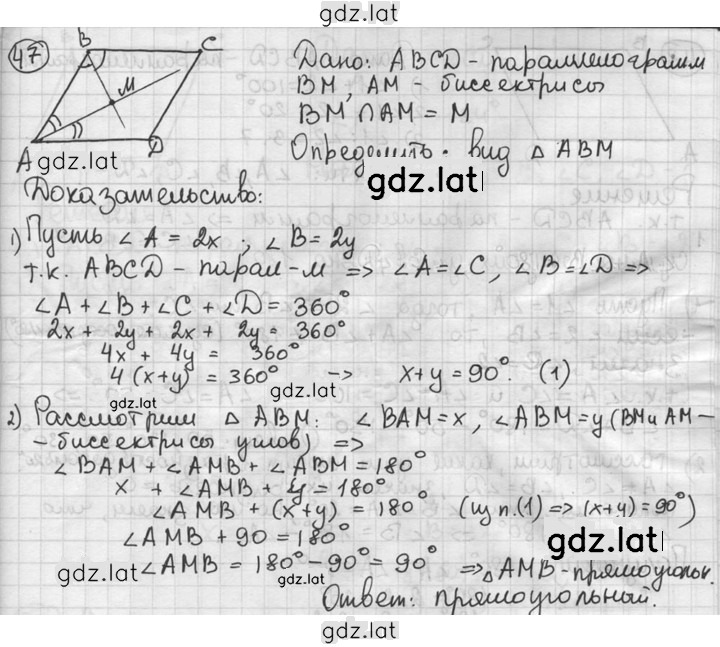 gdz.lat
47 B C
Дано: ABCD - параллелограмм
BM, AM - биссектрисы
M
BM ∩ AM = M
A D
gdz.lat
Определить: вид △ ABM
gdz.lat
Доказательство:
1) Пусть ∠A = 2x ; ∠B = 2y
т.к. ABCD - парал-м => ∠A = ∠C, ∠B = ∠D =>
∠A + ∠B + ∠C + ∠D = 360°
2x + 2y + 2x + 2y = 360°
4x + 4y = 360°
4(x+y) = 360° -> x+y = 90°. (1)
gdz.lat gdz.lat
2) Рассмотрим △ ABM: ∠BAM = x, ∠ABM = y (BM и AM -
- биссектрисы углов) =>
∠BAM + ∠AMB + ∠ABM = 180°
x + ∠AMB + y = 180°
∠AMB + (x+y) = 180° (из п.(1) => (x+y) = 90°)
∠AMB + 90 = 180°
gdz.lat
∠AMB = 180° - 90° = 90° => △AMB - прямоугольн.
gdz.lat gdz.lat
Ответ: прямоугольный.
gdz.lat